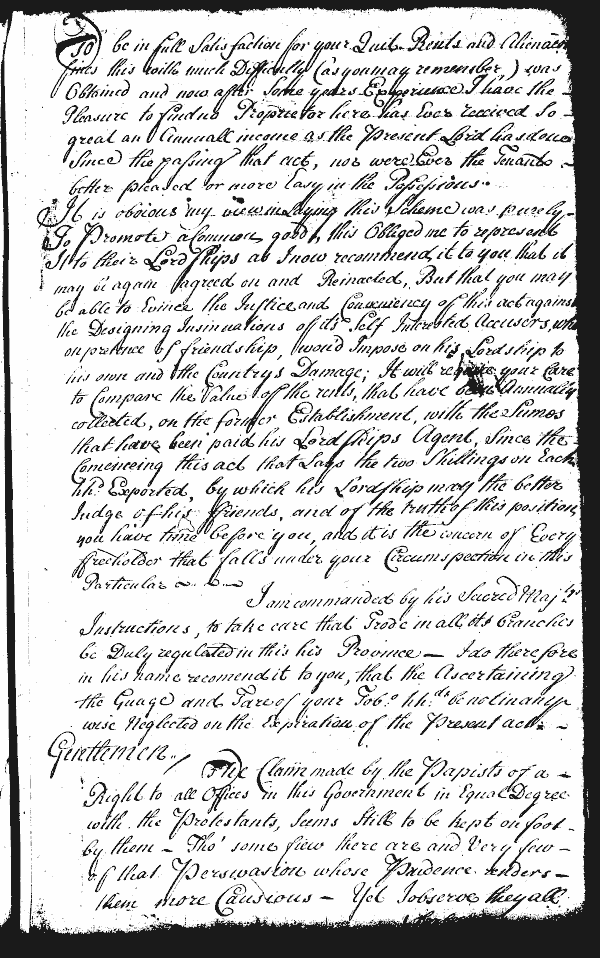 10
be in full Satisfaction for your Quit-Rents and Alienaon
fines this with much Difficulty (as you may remember,) was
Obtained and now after Some years Experience I have the -
Pleasure to find no Proprietor here has Ever received So -
great an Annuall income as the Present Lord has done
Since the passing that act, nor were Ever the Tenants -
better pleased or more Easy in the Possessions.
It is obvious my view in Laying this Scheme was purely -
To Promote a Common good, this Obliged me to represent
It to their Lordships as I now recommend it to you that it
may be again agreed on and Reinacted, But that you may
be able to Evince the Justice and Conveniency of this act against
the Designing Insinuations of its Self Interested Accusers, who
on pretence of friendship, would Impose on his Lordship to
his own and the Countrys Damage; It will require your Care
to Compare the Value of the rents, that have been Annually
collected, on the former Establishment, with the Sumes
that have been paid his Lordships Agent, Since the -
Comenceing this act that Lays the two Shillings on Each
hhd. Exported, by which his Lordship may the better
Judge of his ffriends, and of the truth of this position,
you have time before you, and it is the concern of Every
ffreeholder that falls under your Circumspection in this
Particular
I am commanded by his Sacred Majtys
Instructions, to take care that Trade in all its branches
be Duly regulated in this his Province — I do therefore
in his name recomend it to you, that the Ascertaining
the Guage and Tare of your Tobo. hhds. be not in any
wise Neglected on the Expiration of the Present act. -
Gentlemen,
The Claim made by the Papists of a -
Right to all Offices in this Government in Equal Degree
with the Protestants, Seems Still to be kept on foot -
by them — Tho' some few there are and Very few -
of that Perswasion whose Prudence renders -
them more Cautious — Yet I observe they all